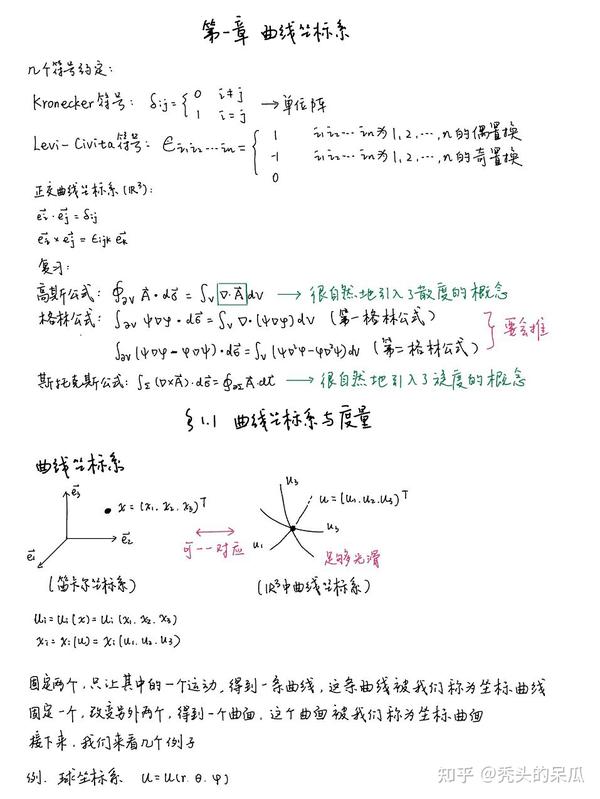 第一章 曲线坐标系
几个符号约定:
Kronecker符号: δij = { 0 i≠j
1 i=j → 单位阵
Levi-Civita符号: ϵi₁i₂⋯in = { 1 i₁i₂⋯in为1,2,⋯,n的偶置换
-1 i₁i₂⋯in为1,2,⋯,n的奇置换
0
正交曲线坐标系(ℝ³):
e⃗i·e⃗j = δij
e⃗i×e⃗j = ϵijk e⃗k
复习:
高斯公式: ∮∂V A⃗·dσ⃗ = ∫V ∇·A⃗ dV → 很自然地引入了散度的概念
格林公式: ∫∂V ψ∇φ·dσ⃗ = ∫V ∇·(ψ∇φ)dV (第一格林公式)
∫∂V (ψ∇φ-φ∇ψ)·dσ⃗ = ∫V (ψ∇²φ-φ∇²ψ)dV (第二格林公式)
} 要会推
斯托克斯公式: ∫Σ (∇×A⃗)·dσ⃗ = ∮∂Σ A⃗·dl⃗ → 很自然地引入了旋度的概念
§1.1 曲线坐标系与度量
曲线坐标系
e⃗3
x = (x₁,x₂,x₃)ᵀ
e⃗2
e⃗1
(笛卡尔坐标系)
可一一对应
u₃
u = (u₁,u₂,u₃)ᵀ
u₃
u₁
足够光滑
(ℝ³中曲线坐标系)
ui = ui(x) = ui(x₁,x₂,x₃)
xi = xi(u) = xi(u₁,u₂,u₃)
固定两个,只让其中的一个运动,得到一条曲线,这条曲线被我们称为坐标曲线
固定一个,改变另外两个,得到一个曲面,这个曲面被我们称为坐标曲面
接下来,我们来看几个例子
例. 球坐标系 u = u(r,θ,φ)
知乎 @秃头的呆瓜